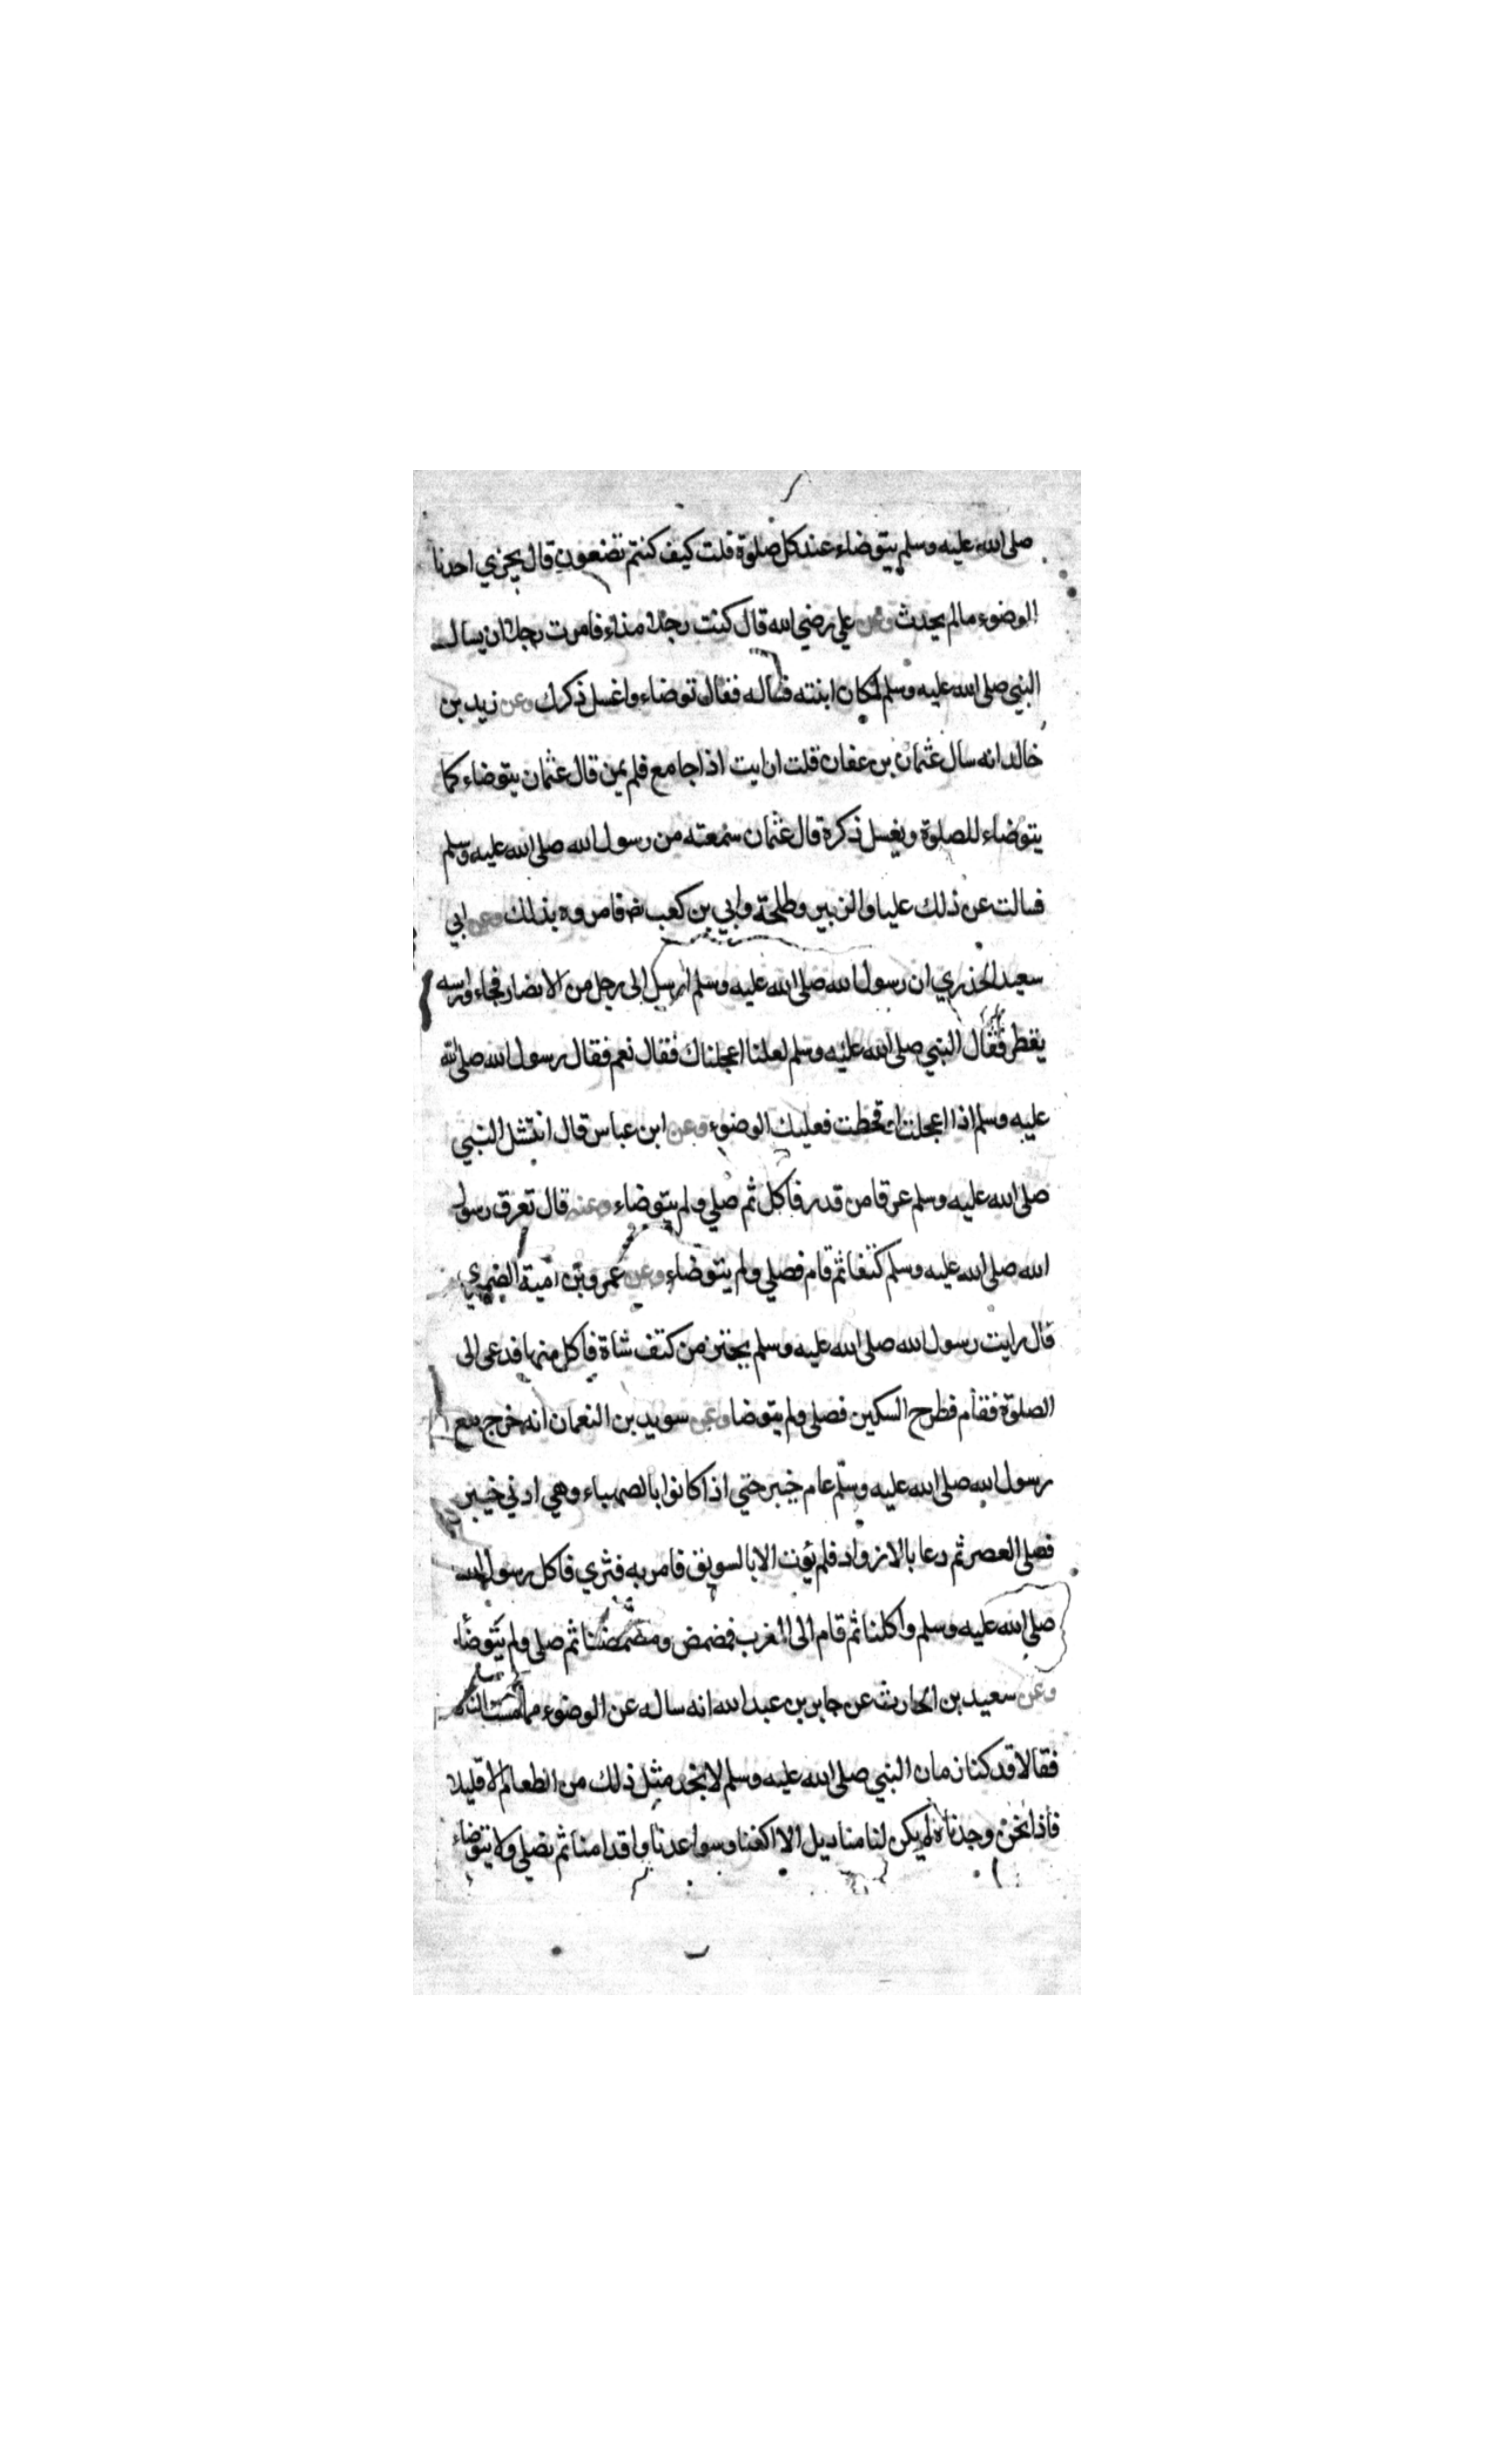 صلى الله عليه وسلم يتوضاء عند كل صلوة قلت كيف كنتم تصنعون قال يجزي احدنا
الوضوء مالم يحدث وعن علي رضي الله قال كنت رجلا مذاء فامرت رجلا ان يسال
النبي صلى الله عليه وسلم لمكان ابنته فساله فقال توضاء واغسل ذكرك وعن زيد بن
خالد انه سال عثمان بن عفان قلت ارايت اذا جامع فلم يمن قال عثمان يتوضاء كما
يتوضاء للصلوة ويغسل ذكره قال عثمان سمعته من رسول الله صلى الله عليه وسلم
فسالت عن ذلك عليا والزبير وطلحة وابي بن كعب فامروه بذلك وعن ابي
سعيد الخذري ان رسول الله صلى الله عليه وسلم ارسل الى رجل من الانصار فجاء وراسه
يقطر فقال النبي صلى الله عليه وسلم لعلنا اعجلناك فقال نعم فقال رسول الله صلى الله
عليه وسلم اذا اعجلت او قحطت فعليك الوضوء وعن ابن عباس قال انتشل النبي
صلى الله عليه وسلم عرقا من قدر فاكل ثم صلى ولم يتوضاء وعنه قال تعرق رسول
الله صلى الله عليه وسلم كتفا ثم قام فصلى ولم يتوضاء وعن عمرو بن امية الضمري
قال رايت رسول الله صلى الله عليه وسلم يحتز من كتف شاة فاكل منها فدعى الى
الصلوة فقام فطرح السكين فصلى ولم يتوضا وعن سويد بن النعمان انه خرج مع
رسول الله صلى الله عليه وسلم عام خيبر حتي اذا كانوا بالصهباء وهي ادني خيبر
فصلى العصر ثم دعا بالازواد فلم يؤت الا بالسويق فامر به فثري فاكل رسول الله
صلى الله عليه وسلم واكلنا ثم قام الى المغرب فمضمض ومضمضنا ثم صلى ولم يتوضأ
وعن سعيد بن الحارث عن جابر بن عبد الله انه ساله عن الوضوء مما مست النار
فقال لا قد كنا زمان النبي صلى الله عليه وسلم لا نجد مثل ذلك من الطعام الا قليلا
فاذا نحن وجدناه لم يكن لنا مناديل الا اكفنا وسواعدنا واقدامنا ثم نصلي ولا نتوضاء